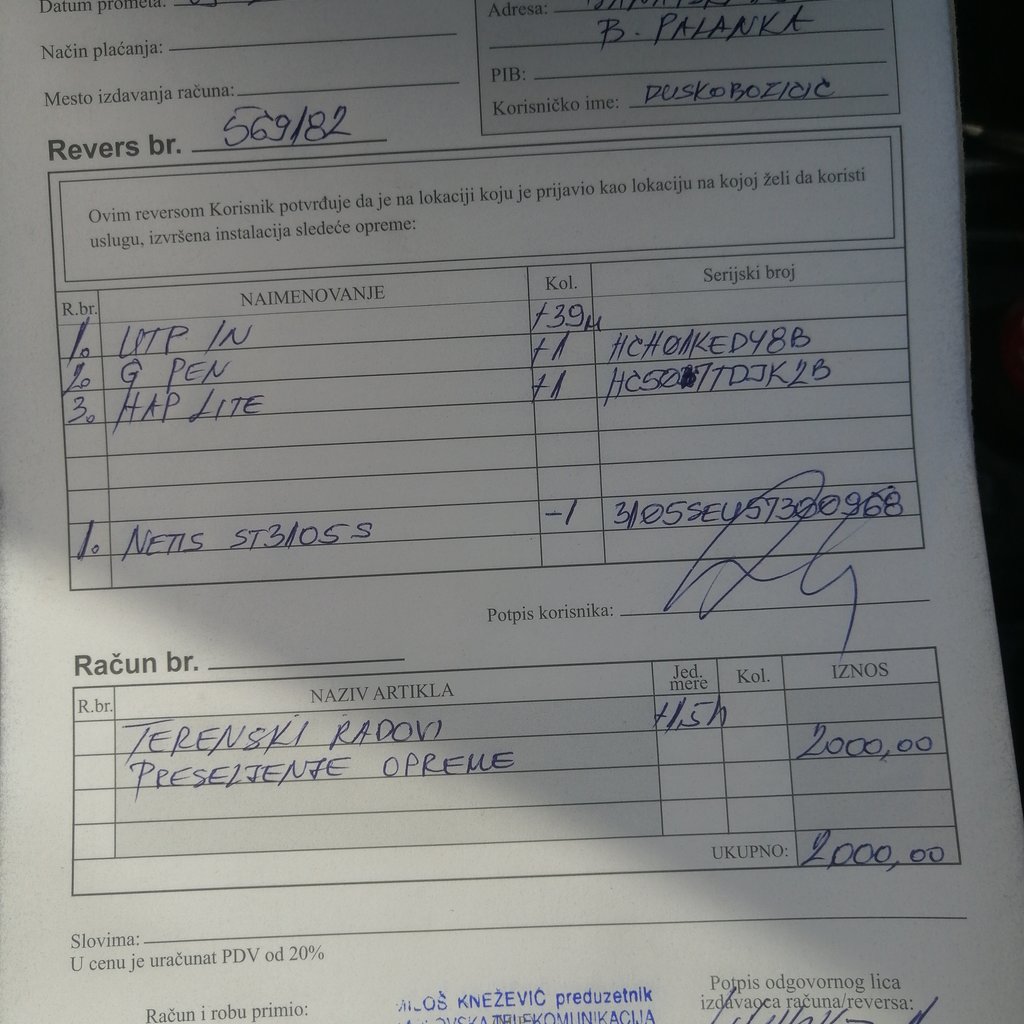 Datum prometa:
Adresa:
B. PALANKA
Način plaćanja:
PIB:
Mesto izdavanja računa:
Korisničko ime: DUSKOBOZICIĆ
Revers br. 569/82
Ovim reversom Korisnik potvrđuje da je na lokaciji koju je prijavio kao lokaciju na kojoj želi da koristi
uslugu, izvršena instalacija sledeće opreme:
R.br. NAIMENOVANJE Kol. Serijski broj
1. UTP IN +39m
2. G PEN +1 HCH01KED48B
3. HAP LITE +1
1. NETIS ST3105S -1
Potpis korisnika:
Račun br.
R.br. NAZIV ARTIKLA Jed. mere Kol. IZNOS
TERENSKI RADOVI +1,5h
PRESELJENJE OPREME 2000,00
UKUPNO: 2000,00
Slovima:
U cenu je uračunat PDV od 20%
Račun i robu primio:
MILOŠ KNEŽEVIĆ preduzetnik
TELEKOMUNIKACIJA
Potpis odgovornog lica
izdavaoca računa/reversa: